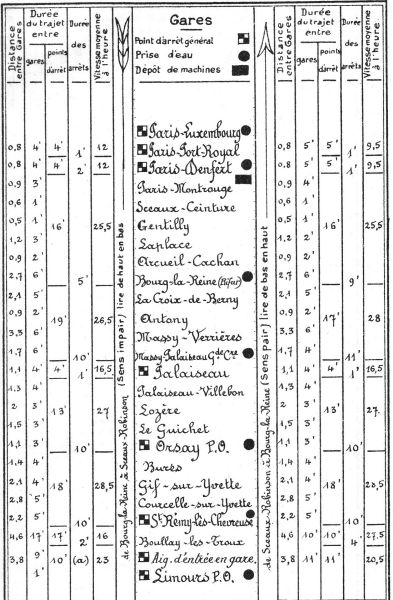 Distance entre Gares
Durée du trajet entre
gares
points d'arrêt
Durée des arrêts
Vitesse moyenne à l'heure
Gares
Point d'arrêt général
Prise d'eau
Dépôt de machines
Distance entre Gares
Durée du trajet entre
gares
points d'arrêt
Durée des arrêts
Vitesse moyenne à l'heure
Paris-Luxembourg
0,8 4' 4' 1' 12 Paris-Port-Royal 0,8 5' 5' 1' 9,5
0,8 4' 4' 2' 12 Paris-Denfert 0,8 5' 5' 1' 9,5
0,9 3' Paris-Montrouge 0,9 4'
0,6 1' Sceaux-Ceinture 0,6 1'
0,5 1' 16' 25,5 Gentilly 0,5 1' 16' 25,5
1,2 3' Laplace 1,2 2'
0,9 2' Arcueil-Cachan 0,9 2'
2,7 6' 5' Bourg-la-Reine (Bifur) 2,7 6' 9'
2,1 5' La Croix-de-Berny 2,1 5'
0,9 2' 19' 26,5 Antony 0,9 2' 17' 28
3,3 6' Massy-Verrières 3,3 6'
1,7 6' 10' Massy-Palaiseau Gde Cre 1,7 4' 11'
1,1 4' 4' 1' 16,5 Palaiseau 1,1 4' 4' 1' 16,5
1,3 4' Palaiseau-Villebon 1,3 4'
2 3' 13' 27 Lozère 2 3' 13' 27
1,5 3' Le Guichet 1,5 3'
1,1 3' 10' Orsay P.O. 1,1 3' 10'
1,4 4' Bures 1,4 4'
2,1 4' 18' 28,5 Gif-sur-Yvette 2,1 4' 18' 28,5
2,8 5' Courcelle-sur-Yvette 2,8 5'
2,2 5' 10' St Rémy-lès-Chevreuse 2,2 5'
4,6 17' 17' 2' 16 Boullay-les-Troux 4,6 10' 10' 4' 27,5
3,8 9' 10' (a) 23 Aig. d'entrée en gare. 3,8 11' 11' 20,5
1' Limours P.O.
de Bourg-la-Reine à Sceaux-Robinson (Sens impair) lire de haut en bas
de Sceaux-Robinson à Bourg-la-Reine (Sens pair) lire de bas en haut